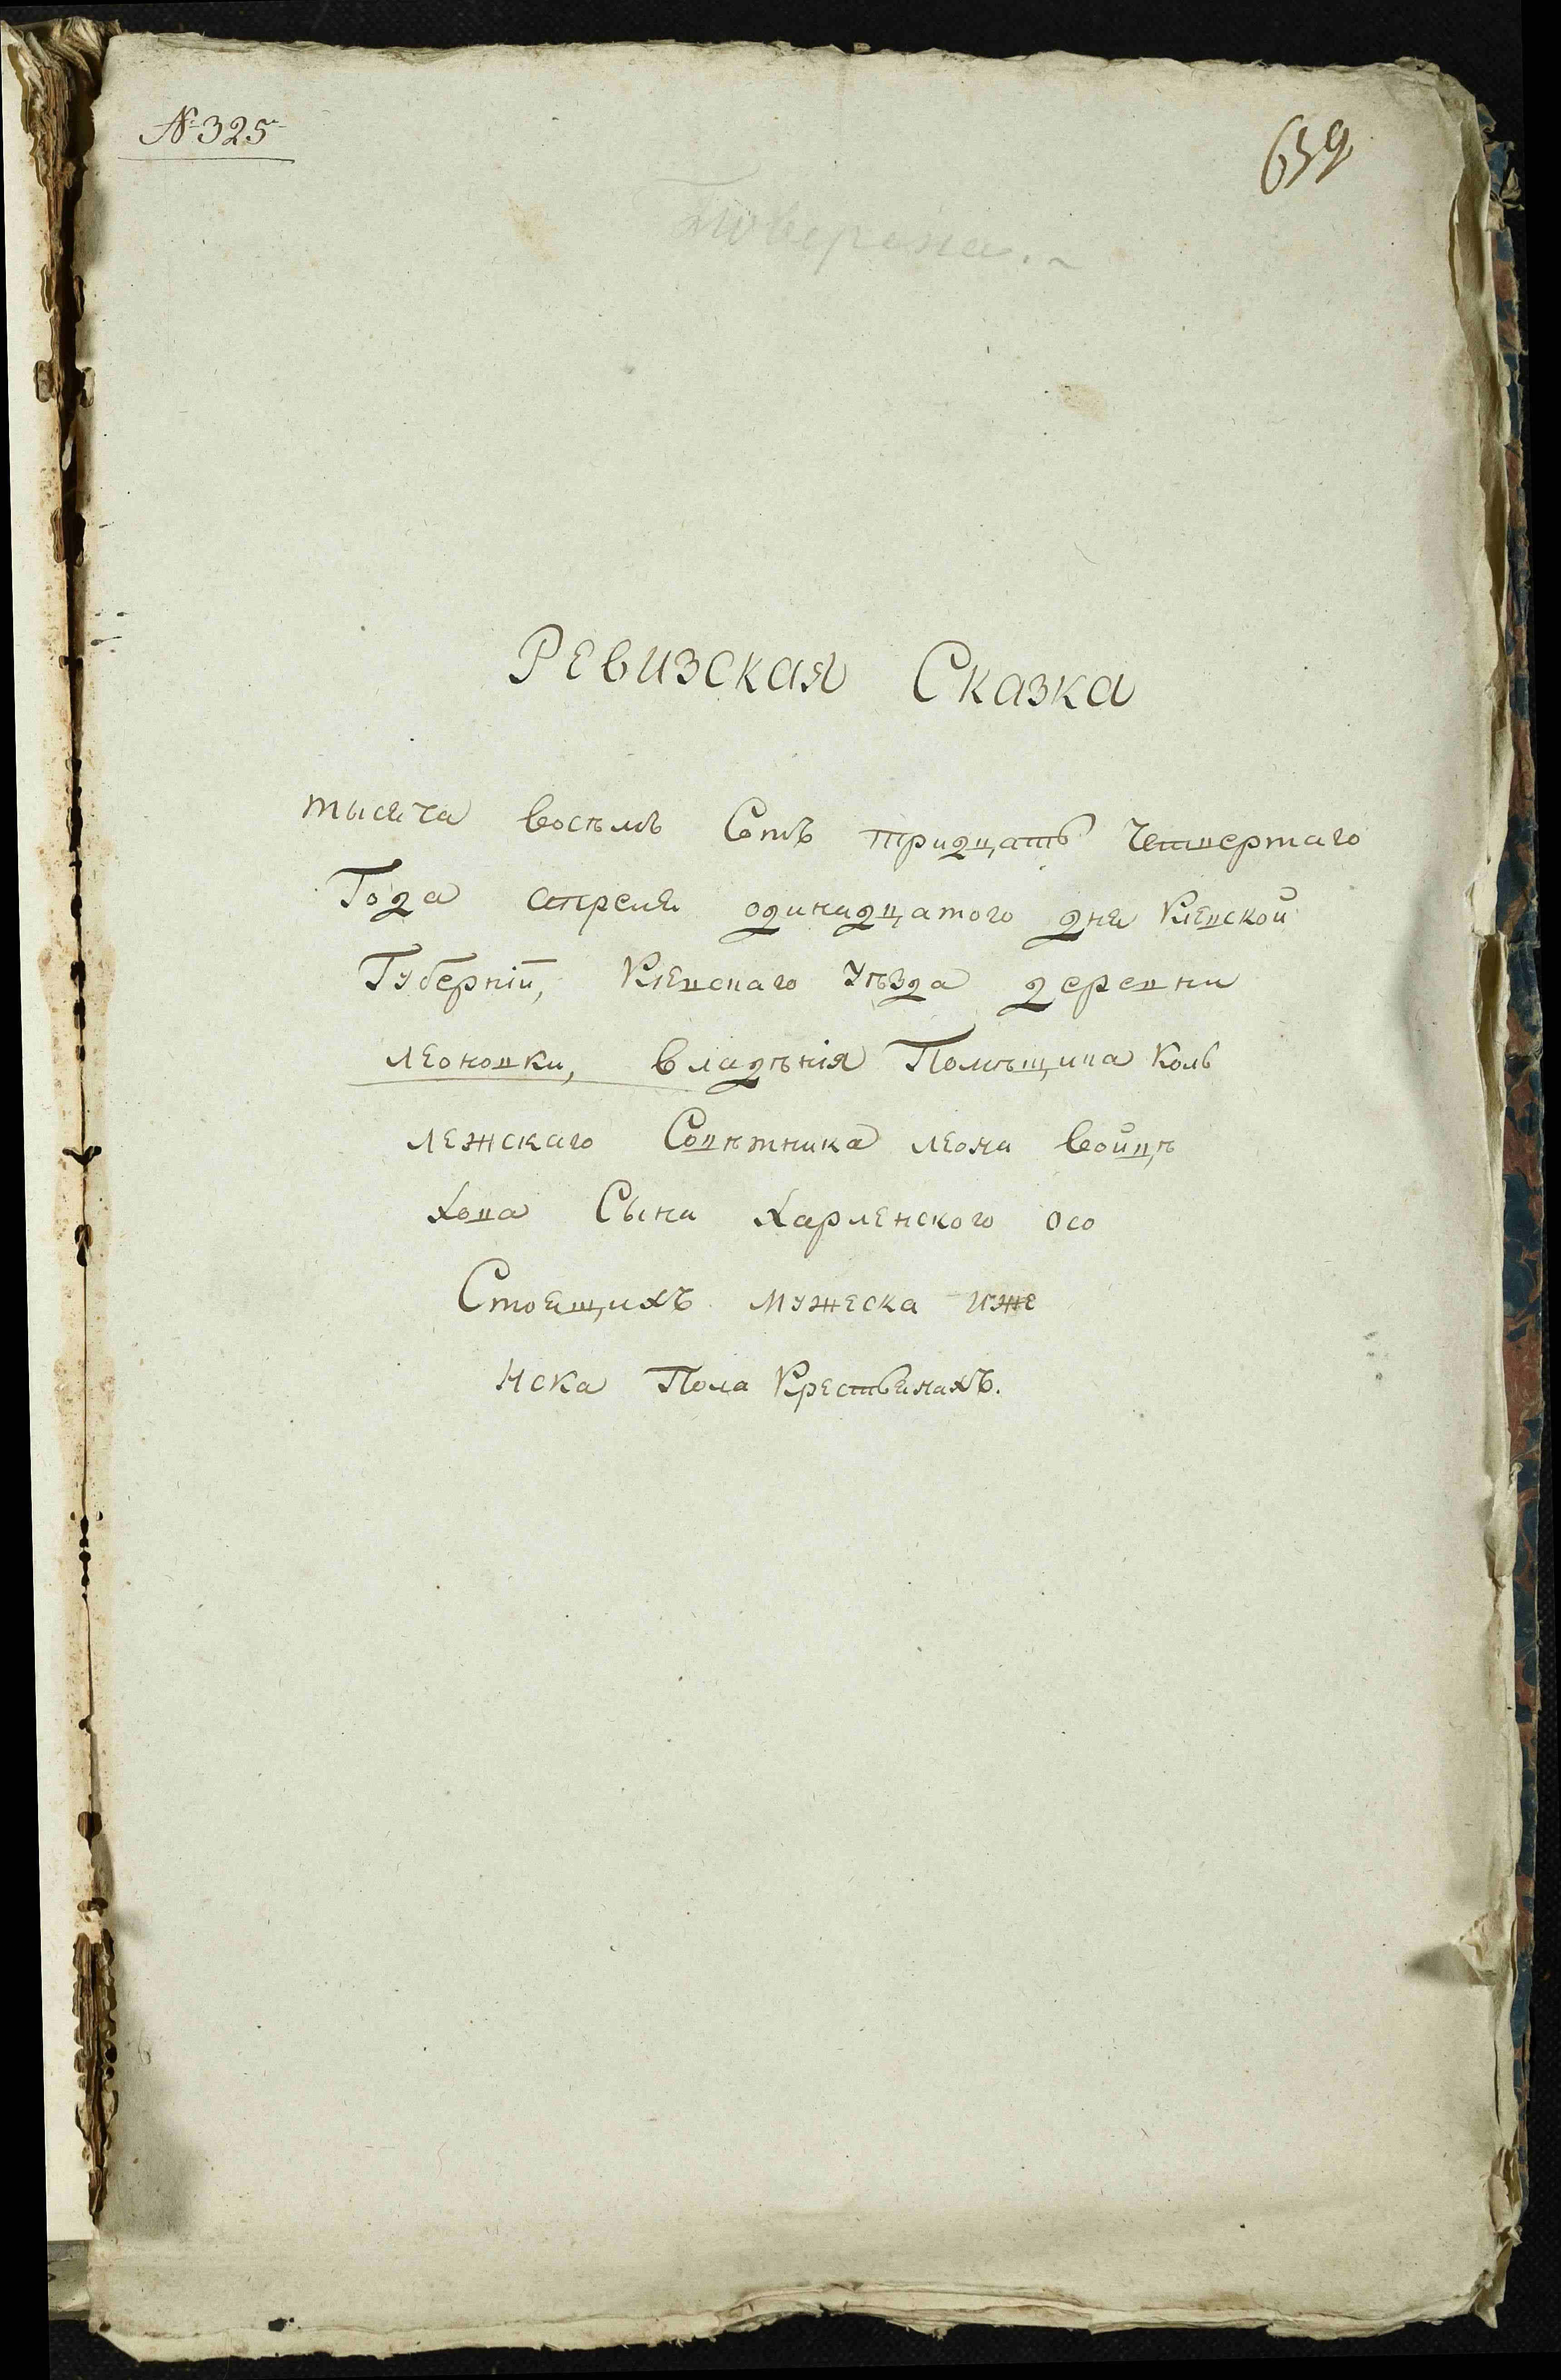 № 325
659
Поверена.
Ревизская Сказка
тысяча восемь Сотъ тридцать Четвертаго
Года апреля одинадцатого дня Кіевской
Губерніи, Кіевскаго Уѣзда деревни
леоновки, владѣнія Помѣщика Коль
лежскаго Совѣтника леона войцѣ
хова Сына Харленского осо
Стоящихъ мужеска и же
нска Пола Крестьянахъ.